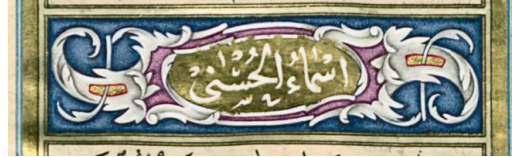 اسْمَاءُ الْحُسْنٰى